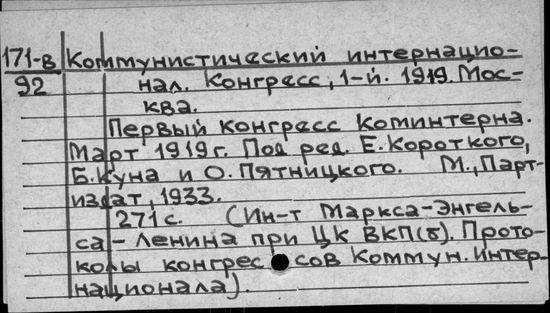 171-в Коммунистический интернацио-
92 нал. Конгресс, 1-й. 1919. Мос-
ква.
Первый конгресс Коминтерна.
Март 1919 г. Под ред. Е. Короткого,
Б. Куна и О. Пятницкого. М., Парт-
издат, 1933.
271 с. (Ин-т Маркса-Энгель-
са-Ленина при ЦК ВКП(б). Прото-
колы конгрессов Коммун. Интер-
национала).